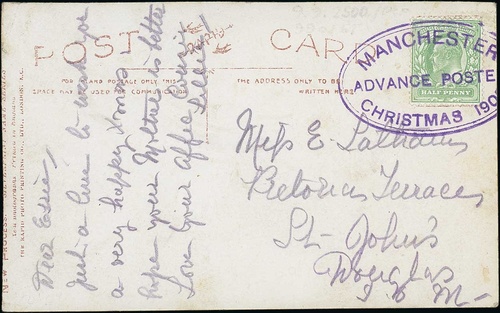 POST CARD
FOR INLAND POSTAGE ONLY THIS
SPACE MAY BE USED FOR COMMUNICATION
THE ADDRESS ONLY TO BE
WRITTEN HERE
MANCHESTER
ADVANCE POSTE
CHRISTMAS 190
HALF PENNY
Dear Essie,
Just a line to wish you
a very happy Xmas
hope your Mother is better
Love Your affec
Miss E.
Victoria Terrace
St John's
Douglas
I O M
THE RAPID PHOTO PRINTING CO., LTD., LONDON, E.C.